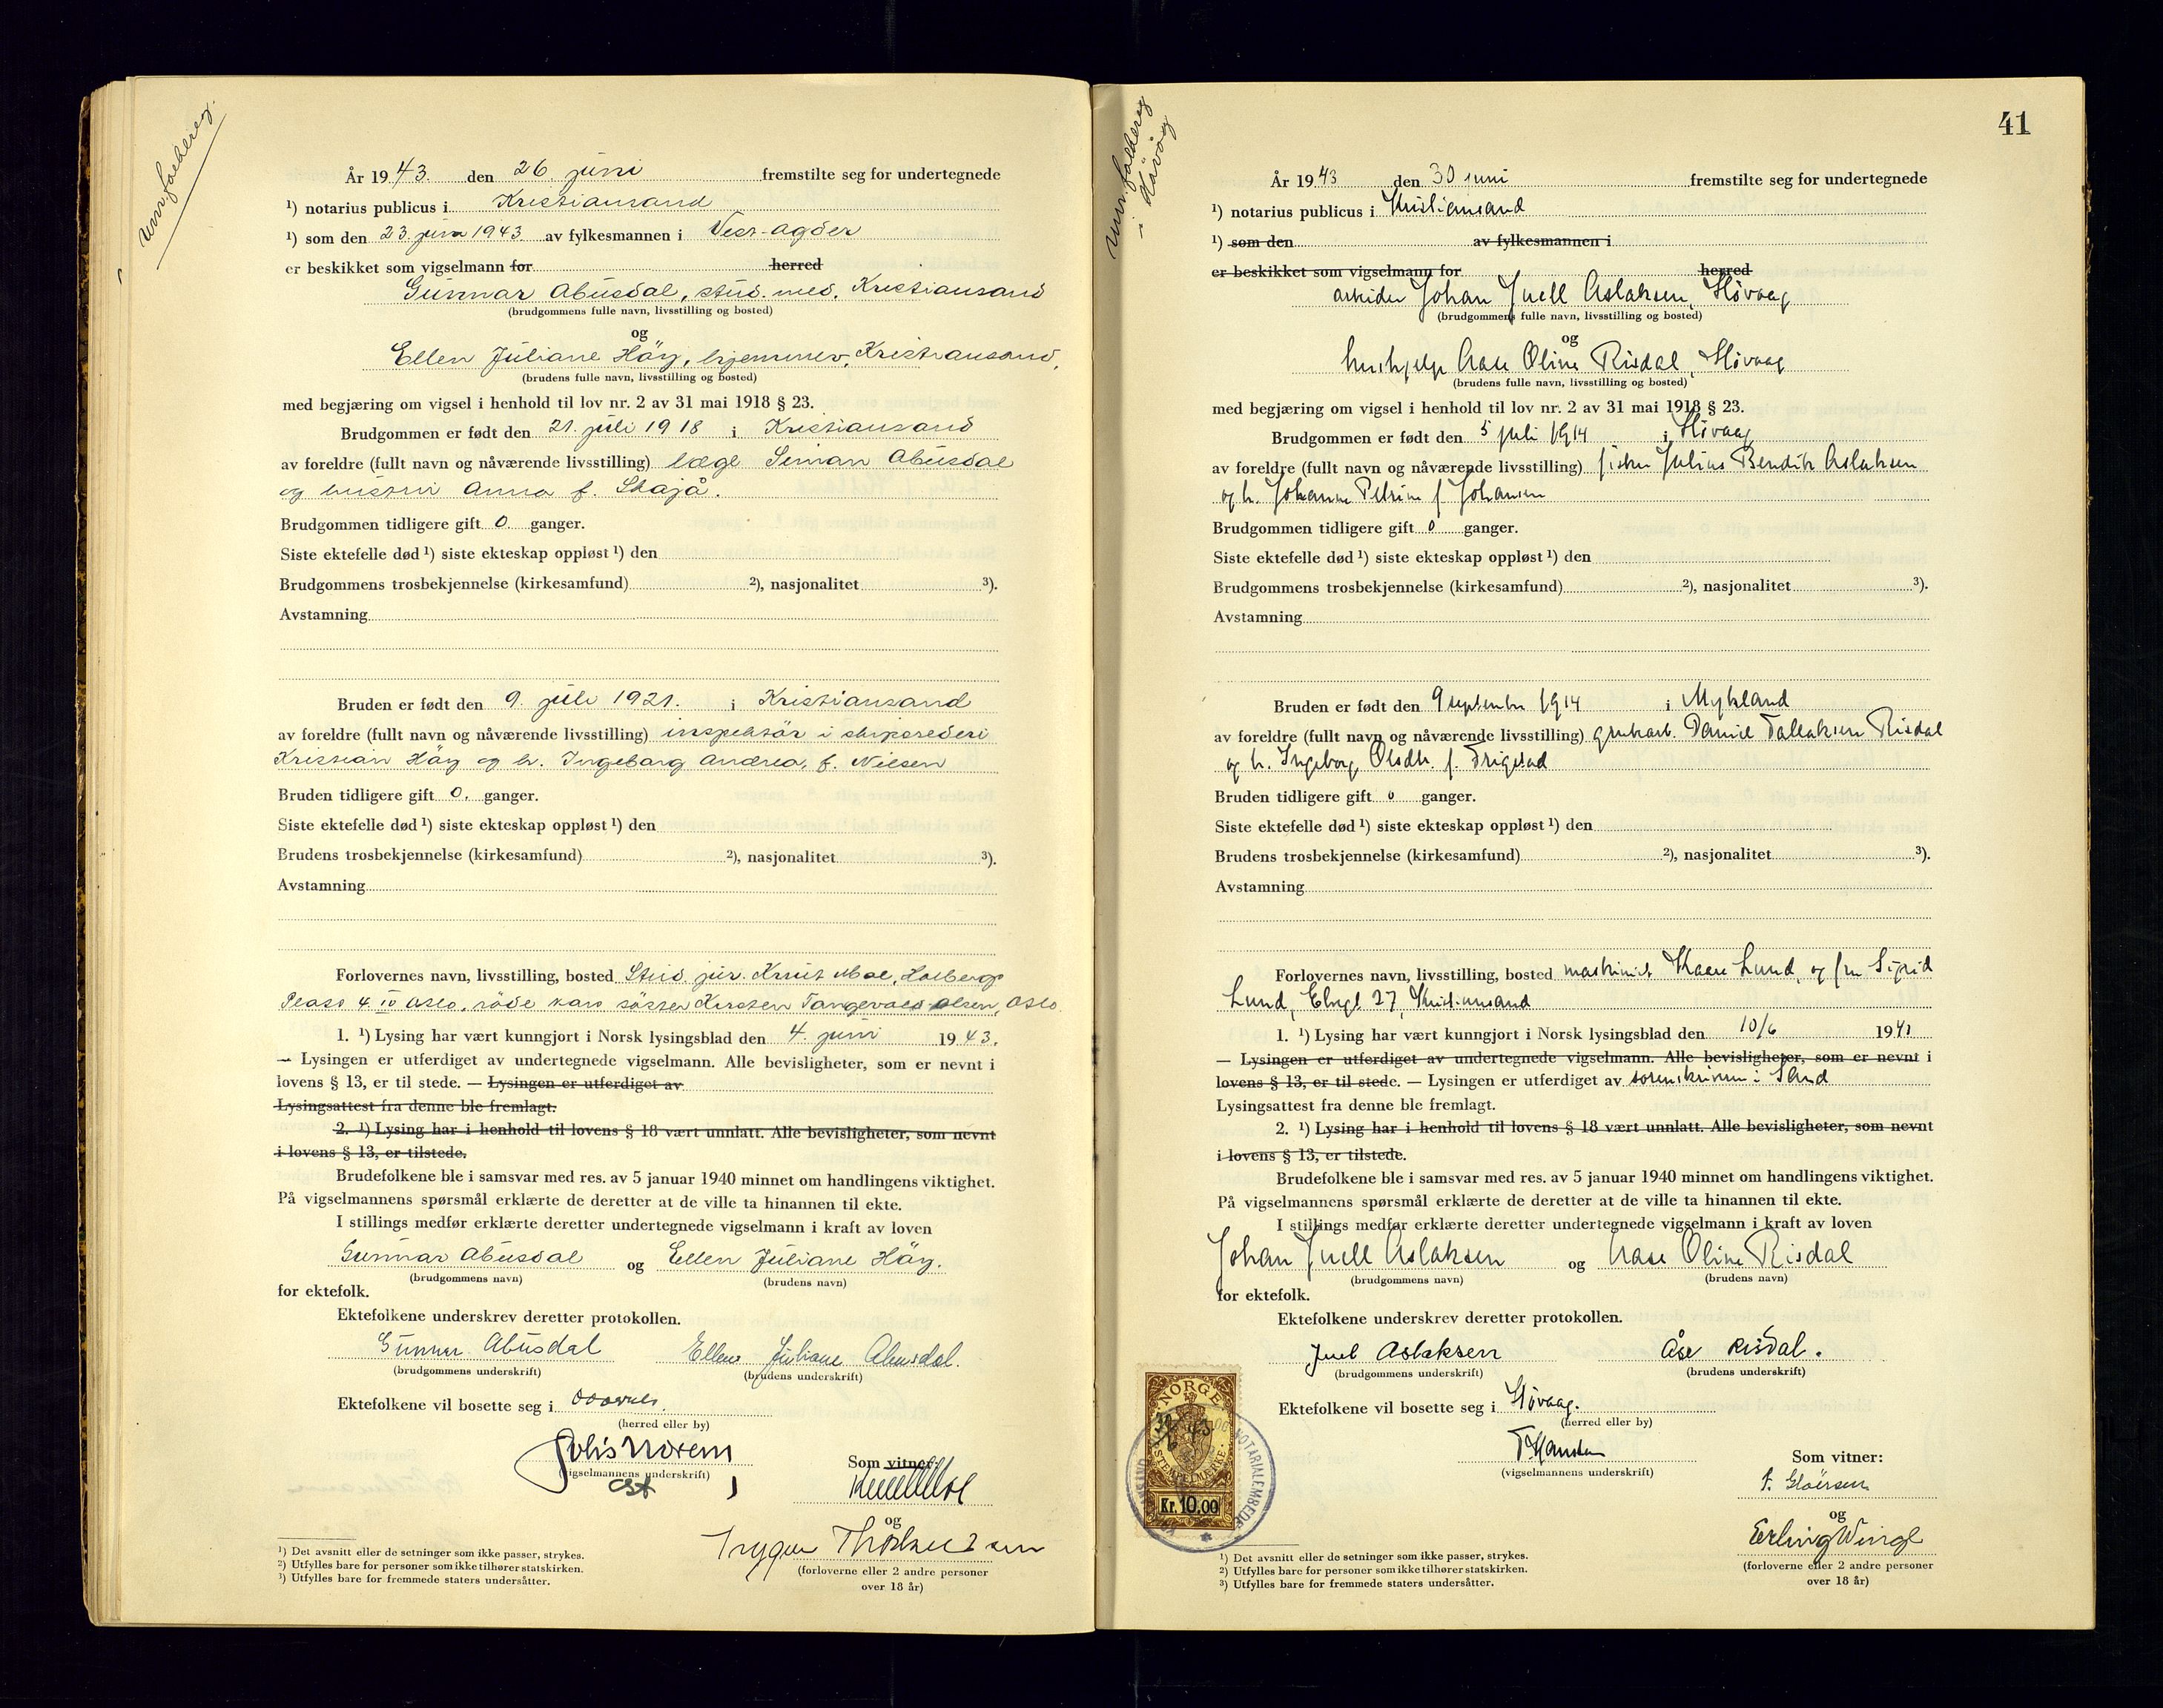 År 1943. den 26. juni fremstilte seg for undertegnede
¹) notarius publicus i Kristiansand
¹) som den 23. juni 1943 av fylkesmannen i Vest-Agder
er beskikket som vigselmann for herred
Gunnar Abusdal, stud. med. Kristiansand
(brudgommens fulle navn, livsstilling og bosted)
og
Ellen Juliane Höy, hjemmev., Kristiansand,
(brudens fulle navn, livsstilling og bosted)
med begjæring om vigsel i henhold til lov nr. 2 av 31 mai 1918 § 23.
Brudgommen er født den 21. juli 1918 i Kristiansand
av foreldre (fullt navn og nåværende livsstilling) læge Simon Abusdal
og hustru Anna f. Skajå.
Brudgommen tidligere gift 0 ganger.
Siste ektefelle død ¹) siste ekteskap oppløst ¹) den
Brudgommens trosbekjennelse (kirkesamfund) ²), nasjonalitet ³).
Avstamning
Bruden er født den 9. juli 1921. i Kristiansand
av foreldre (fullt navn og nåværende livsstilling) inspektör i skipsrederi
Kristian Höy og h. Ingeborg Andrea, f. Nilsen
Bruden tidligere gift 0. ganger.
Siste ektefelle død ¹) siste ekteskap oppløst ¹) den
Brudens trosbekjennelse (kirkesamfund) ²), nasjonalitet ³).
Avstamning
Forlovernes navn, livsstilling, bosted Stud. jur. Knut Moe, Holbergs
Plass 4 IV Oslo, röde kors söster Kirsten Tangevald-Olsen, Oslo
1. ¹) Lysing har vært kunngjort i Norsk lysingsblad den 4. juni 1943.
— Lysingen er utferdiget av undertegnede vigselmann. Alle bevisligheter, som er nevnt i
lovens § 13, er til stede. — Lysingen er utferdiget av
Lysingsattest fra denne ble fremlagt.
2. ¹) Lysing har i henhold til lovens § 18 vært unnlatt. Alle bevisligheter, som nevnt
i lovens § 13, er tilstede.
Brudefolkene ble i samsvar med res. av 5 januar 1940 minnet om handlingens viktighet.
På vigselmannens spørsmål erklærte de deretter at de ville ta hinannen til ekte.
I stillings medfør erklærte deretter undertegnede vigselmann i kraft av loven
Gunnar Abusdal og Ellen Juliane Höy.
(brudgommens navn) (brudens navn)
for ektefolk.
Ektefolkene underskrev deretter protokollen.
Gunnar Abusdal Ellen Juliane Abusdal.
(brudgommens underskrift) (brudens underskrift)
Ektefolkene vil bosette seg i
(herred eller by)
Som vitner:
(vigselmannens underskrift)
og
(forloverne eller 2 andre personer
over 18 år)
¹) Det avsnitt eller de setninger som ikke passer, strykes.
²) Utfylles bare for personer som ikke tilhører statskirken.
³) Utfylles bare for fremmede staters undersåtter.
41
År 1943 den 30 juni fremstilte seg for undertegnede
¹) notarius publicus i Kristiansand
¹) som den av fylkesmannen i
er beskikket som vigselmann for herred
arbeider Johan Juell Aslaksen, Høvaag
(brudgommens fulle navn, livsstilling og bosted)
og
hushjelp Aase Oline Risdal, Høvaag
(brudens fulle navn, livsstilling og bosted)
med begjæring om vigsel i henhold til lov nr. 2 av 31 mai 1918 § 23.
Brudgommen er født den 5 juli 1914 i Høvaag
av foreldre (fullt navn og nåværende livsstilling) fisker Julius Bendik Aslaksen
og h. Johanne Petrine f. Johansen
Brudgommen tidligere gift 0 ganger.
Siste ektefelle død ¹) siste ekteskap oppløst ¹) den
Brudgommens trosbekjennelse (kirkesamfund) ²), nasjonalitet ³).
Avstamning
Bruden er født den 9 september 1914 i Mykland
av foreldre (fullt navn og nåværende livsstilling) grubearb. Daniel Tallaksen Risdal
og h. Ingeborg Olsdtr. f.
Bruden tidligere gift 0 ganger.
Siste ektefelle død ¹) siste ekteskap oppløst ¹) den
Brudens trosbekjennelse (kirkesamfund) ²), nasjonalitet ³).
Avstamning
Forlovernes navn, livsstilling, bosted maskinist Kaare Lund, og fru Sigrid
Lund, 27, Kristiansand
1. ¹) Lysing har vært kunngjort i Norsk lysingsblad den 10/6 1943
— Lysingen er utferdiget av undertegnede vigselmann. Alle bevisligheter, som er nevnt i
lovens § 13, er til stede. — Lysingen er utferdiget av sorenskriveren i Sand
Lysingsattest fra denne ble fremlagt.
2. ¹) Lysing har i henhold til lovens § 18 vært unnlatt. Alle bevisligheter, som nevnt
i lovens § 13, er tilstede.
Brudefolkene ble i samsvar med res. av 5 januar 1940 minnet om handlingens viktighet.
På vigselmannens spørsmål erklærte de deretter at de ville ta hinannen til ekte.
I stillings medfør erklærte deretter undertegnede vigselmann i kraft av loven
Johan Juell Aslaksen og Aase Oline Risdal
(brudgommens navn) (brudens navn)
for ektefolk.
Ektefolkene underskrev deretter protokollen.
Juel Aslaksen Åse Risdal.
(brudgommens underskrift) (brudens underskrift)
Ektefolkene vil bosette seg i Høvaag.
(herred eller by)
NORGE
STEMPELMERKE
Kr. 10.00
(vigselmannens underskrift)
Som vitner:
og
Erling Winge
(forloverne eller 2 andre personer
over 18 år)
¹) Det avsnitt eller de setninger som ikke passer, strykes.
²) Utfylles bare for personer som ikke tilhører statskirken.
³) Utfylles bare for fremmede staters undersåtter.